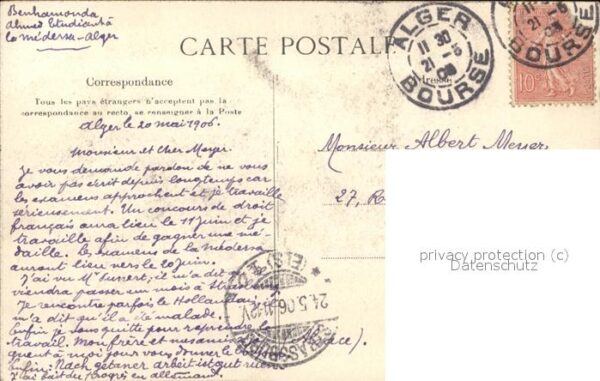 Benhamouda
Ahmed Etudiant à
la Médersa - Alger
CARTE POSTALE
ALGER
11 30
21 - 5
06
BOURSE
11
21 - 5
06
BOURSE
10c
Correspondance
Adresse
Tous les pays étrangers n'acceptent pas la
correspondance au recto, se renseigner à la Poste
Alger le 20 mai 1906.
Monsieur et Cher
Je vous demande pardon de ne vous
avoir pas écrit depuis longtemps car
les examens approchent et je travaille
sérieusement. Un concours de droit
français aura lieu le 11 Juin et je
travaille afin de gagner une mé
daille. Les examens de la Médersa
auront lieu vers le 20 Juin.
J'ai vu Mr il m'a dit
viendra passer un mois à
Je rencontre parfois le Hollandais
m'a dit qu'il a été malade.
Enfin je vous quitte pour reprendre le
travail. Mon frère et
à moi pour vous donner le
Enfin: Nach getaner Arbeit ist gut
J'ai fait du progrès en allemand.
Monsieur Albert
27, R
(Alsace).
(ELS)
24.5.06.11-12V
privacy protection (c)
Datenschutz